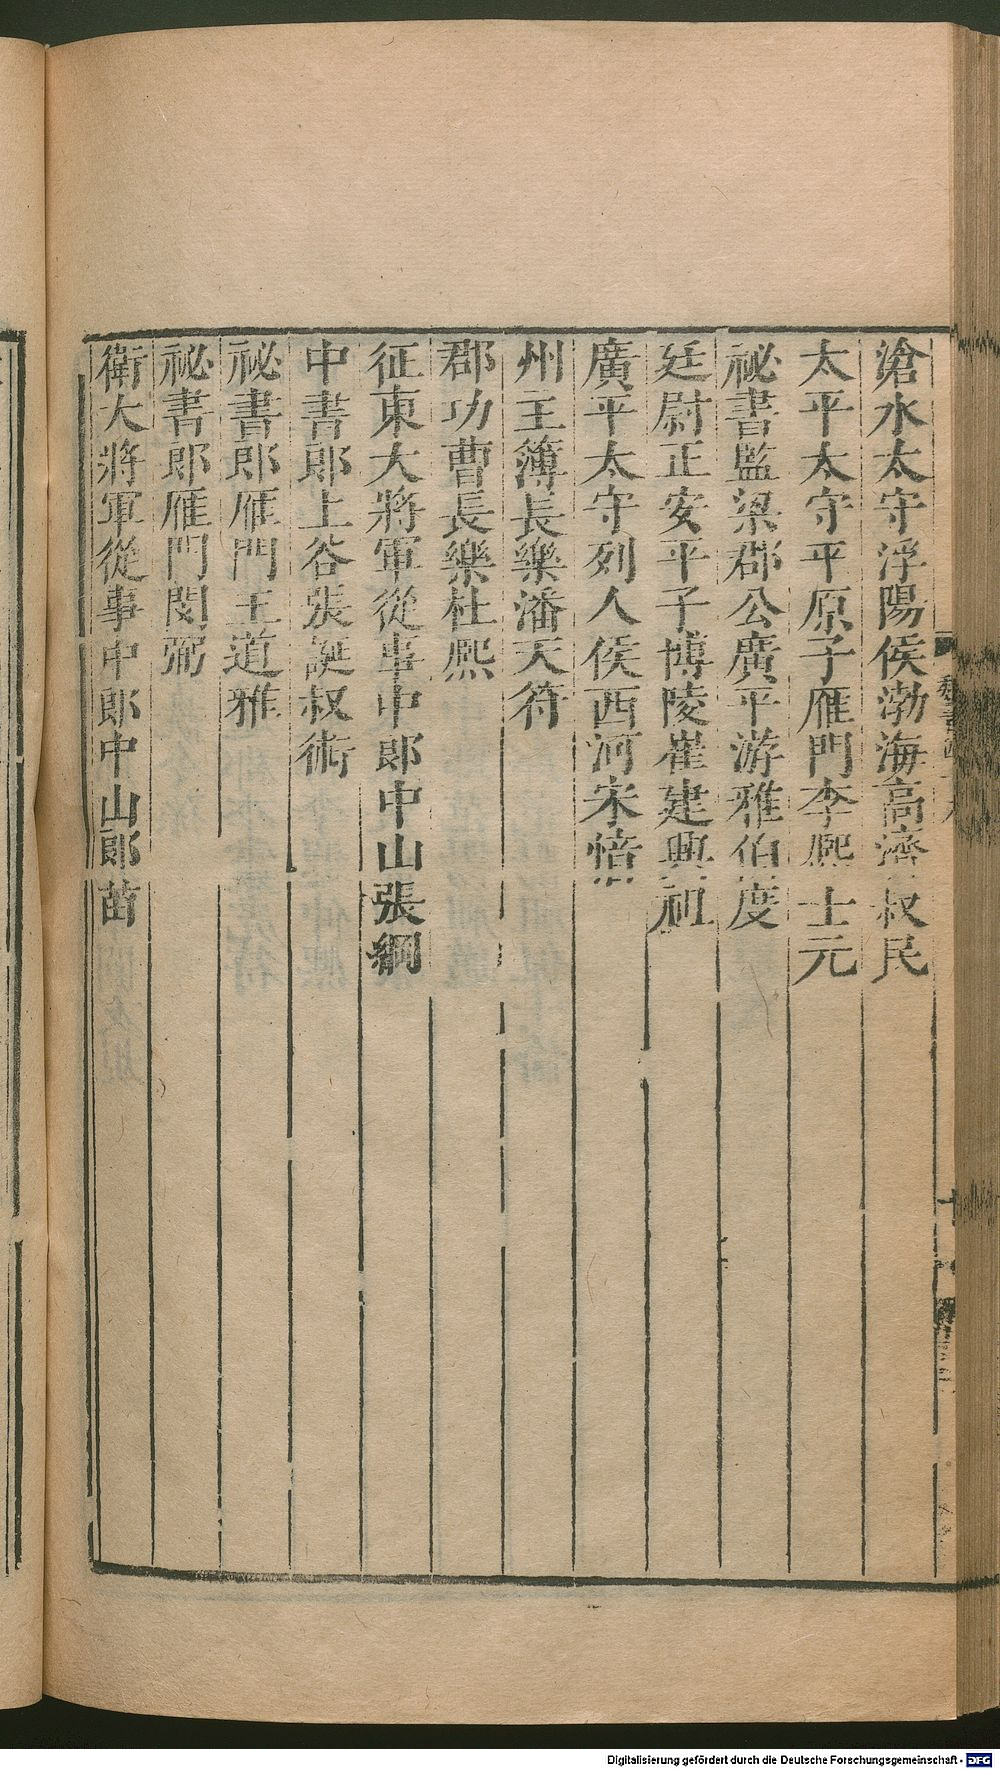 滄水太守浮陽侯渤海高濟叔民
太平太守平原子雁門李熙士元
祕書監梁郡公廣平游雅伯度
廷尉正安平子博陵崔建興祖
廣平太守列人侯西河宋愔
州主簿長樂潘天符
郡功曹長樂杜熙
征東大將軍從事中郎中山張綱
中書郎上谷張誕叔術
祕書郎雁門王道雅
祕書郎雁門閔弼
衛大將軍從事中郎中山郎苗
Digitalisierung gefördert durch die Deutsche Forschungsgemeinschaft - DFG